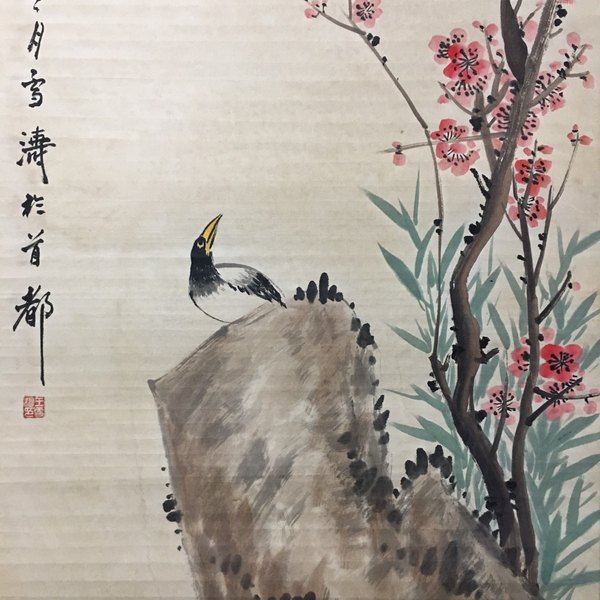 月雪濤於首都